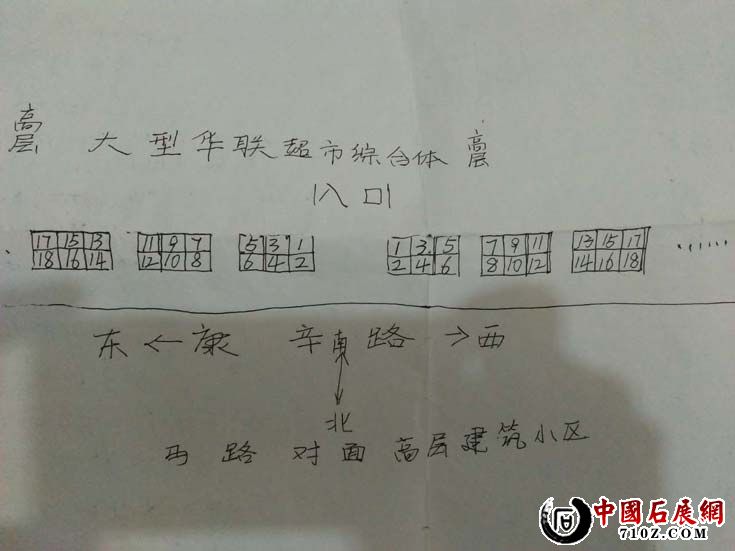 高层 大型华联超市综合体 高层
入口
17 15 13 11 9 7 5 3 1 1 3 5 7 9 11 13 15 17 ......
18 16 14 12 10 8 6 4 2 2 4 6 8 10 12 14 16 18
东 ← 康 辛 路 → 西
南
北
马路对面高层建筑小区
中國石展網
710Z.COM